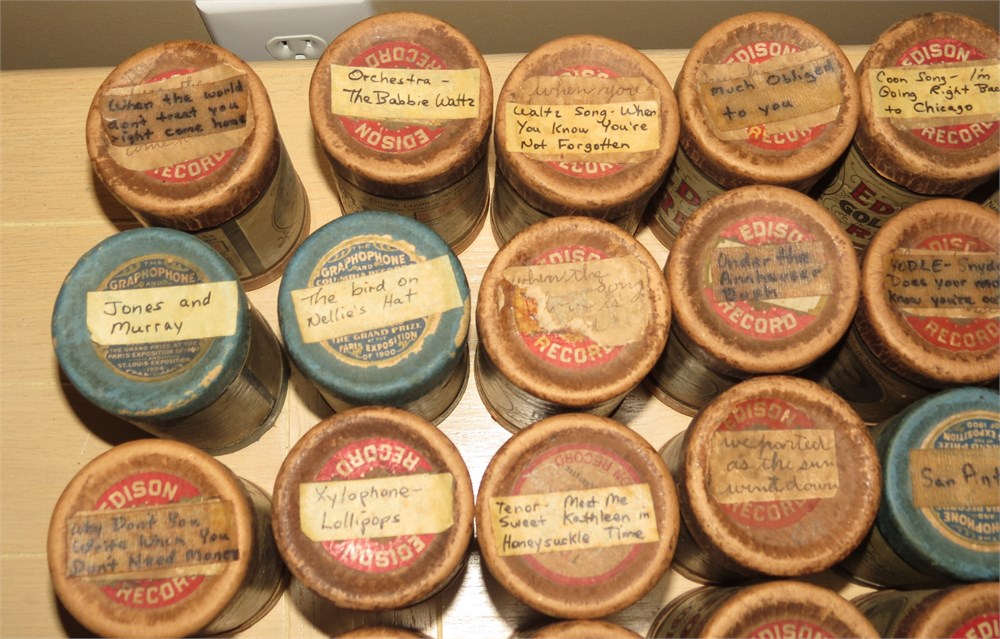 When the world
don't treat you
right come home
RECORD
RECORD
Orchestra -
The Babbie Waltz
EDISON
when you
Waltz Song - When
You Know You're
Not Forgotten
EDISON
much Obliged
to you
EDISON
Coon Song - I'm
Going Right Bac
to Chicago
RECORD
EDISON
GOL
THE
GRAPHOPHONE
AND
Jones and
Murray
THE GRAND PRIZE
AT THE
PARIS EXPOSITION OF
AND
ST. LOUIS EXPOSITION
1904
THE
GRAPHOPHONE
AND
COLUMBIA RECORDS
The bird on
Nellie's Hat
THE GRAND PRIZE
AT THE
PARIS EXPOSITION
OF 1900
EDISON
when the
song
RECORD
EDISON
Under the
Annheuser
Bush
RECORD
EDISON
YODLE - Snyde
Does your
Know you're out
RECORD
EDISON
Why Don't You
Write When You
Don't Need Money
RECORD
RECORD
Xylophone -
Lollipops
EDISON
RECORD
Tenor - Meet Me
Sweet Kathleen in
Honeysuckle Time
we parted
as the sun
went down
RECORD
EXPOSITION
OF 1900
San Ant
PHONE
EDISON